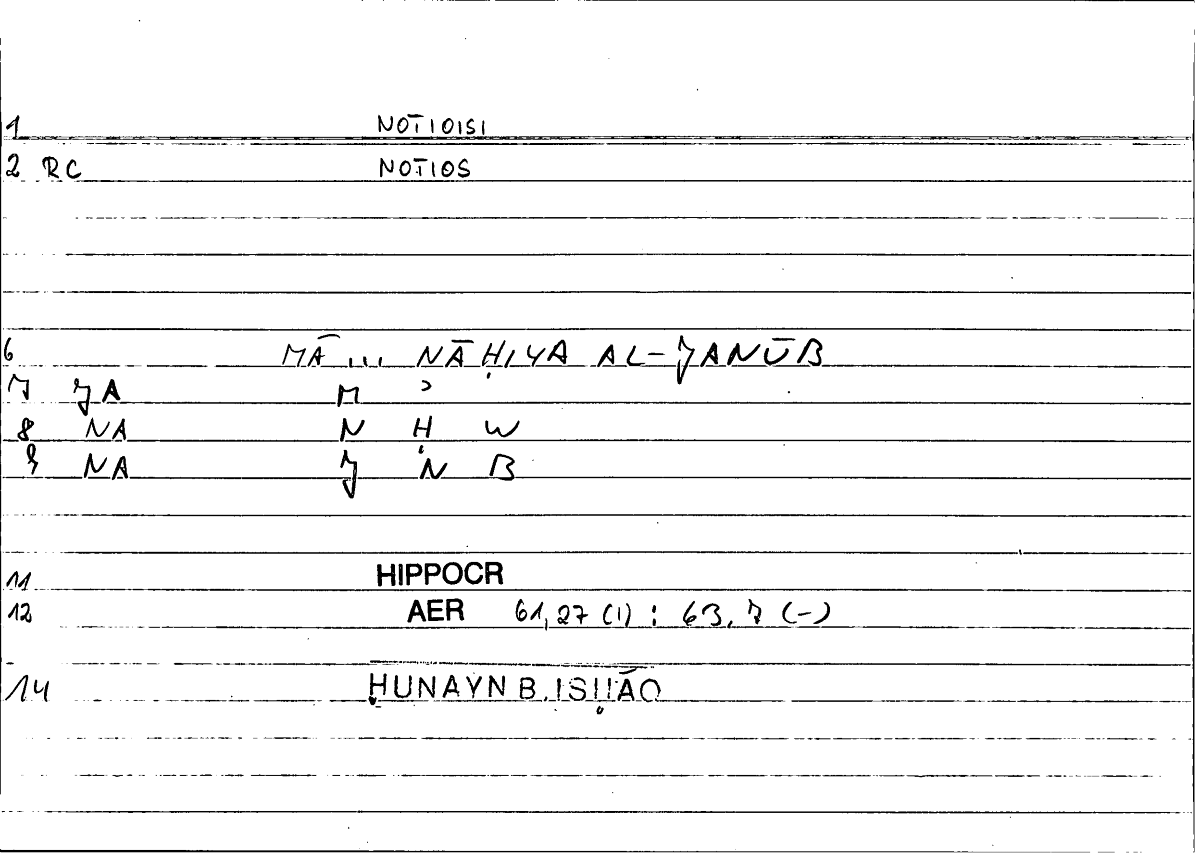 1 NOTIOISI
2 RC NOTIOS
6 MĀ ... NĀḤIYA AL-JANŪB
7 JA M ʾ
8 NA N Ḥ W
9 NA J N B
11 HIPPOCR
12 AER 61,27 (1) : 63,7 (-)
14 ḤUNAYN B. ISḤĀQ